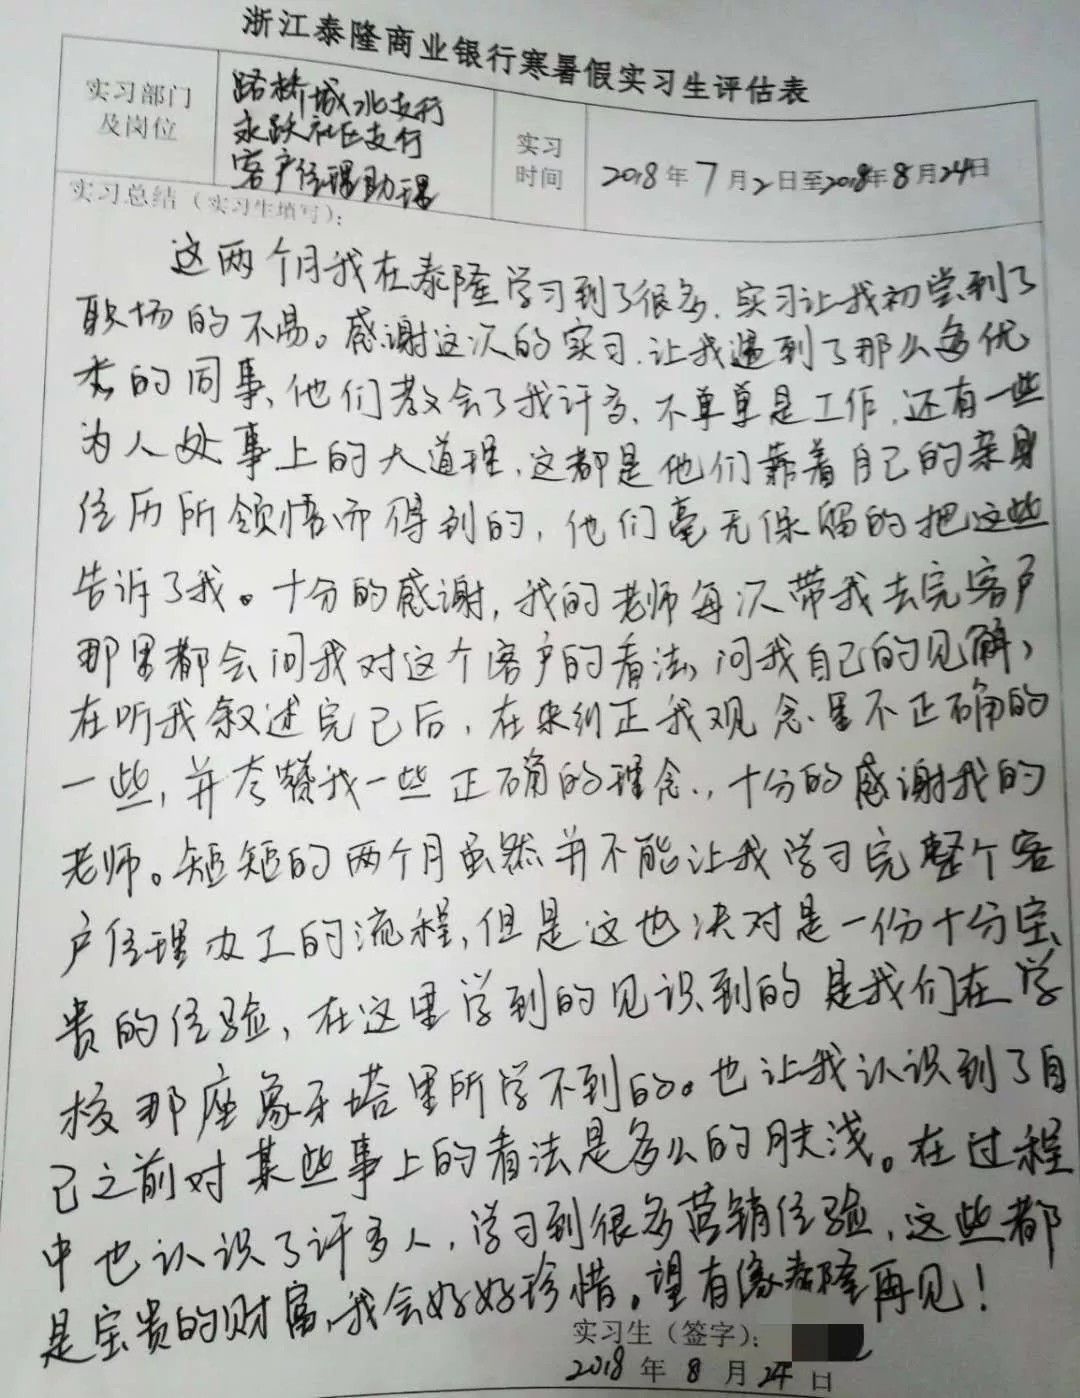 浙江泰隆商业银行寒暑假实习生评估表
实习部门
及岗位
路桥城北支行
永跃社区支行
客户经理助理
实习
时间
2018年7月2日至2018年8月24日
实习总结（实习生填写）：
这两个月我在泰隆学习到了很多，实习让我初尝到了
职场的不易。感谢这次的实习，让我遇到了那么多优
秀的同事，他们教会了我许多，不单单是工作，还有一些
为人处事上的大道理，这都是他们靠着自己的亲身
经历所领悟而得到的，他们毫无保留的把这些
告诉了我。十分的感谢，我的老师每次带我去完客户
那里都会问我对这个客户的看法，问我自己的见解，
在听我叙述完已后，在来纠正我观念里不正确的
一些，并夸赞我一些正确的理念，十分的感谢我的
老师。短短的两个月虽然并不能让我学习完整个客
户经理办工的流程，但是这也决对是一份十分宝
贵的经验，在这里学到的见识到的是我们在学
校那座象牙塔里所学不到的。也让我认识到了自
己之前对某些事上的看法是多么的肤浅。在过程
中也认识了许多人，学习到很多营销经验，这些都
是宝贵的财富，我会好好珍惜。望有缘泰隆再见！
实习生（签字）：
2018年8月24日